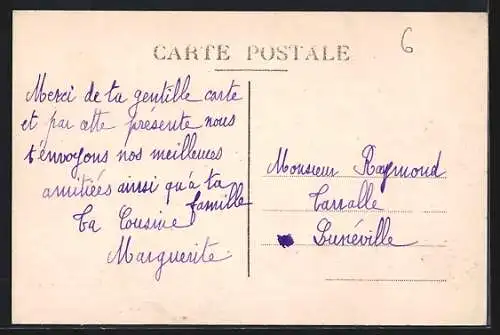 CARTE POSTALE
6
Merci de ta gentille carte
et par cette présente nous
t'envoyons nos meilleures
amitiées ainsi qu'à ta
famille
Ta Cousine
Marguerite.
Monsieur Raymond
Lunéville